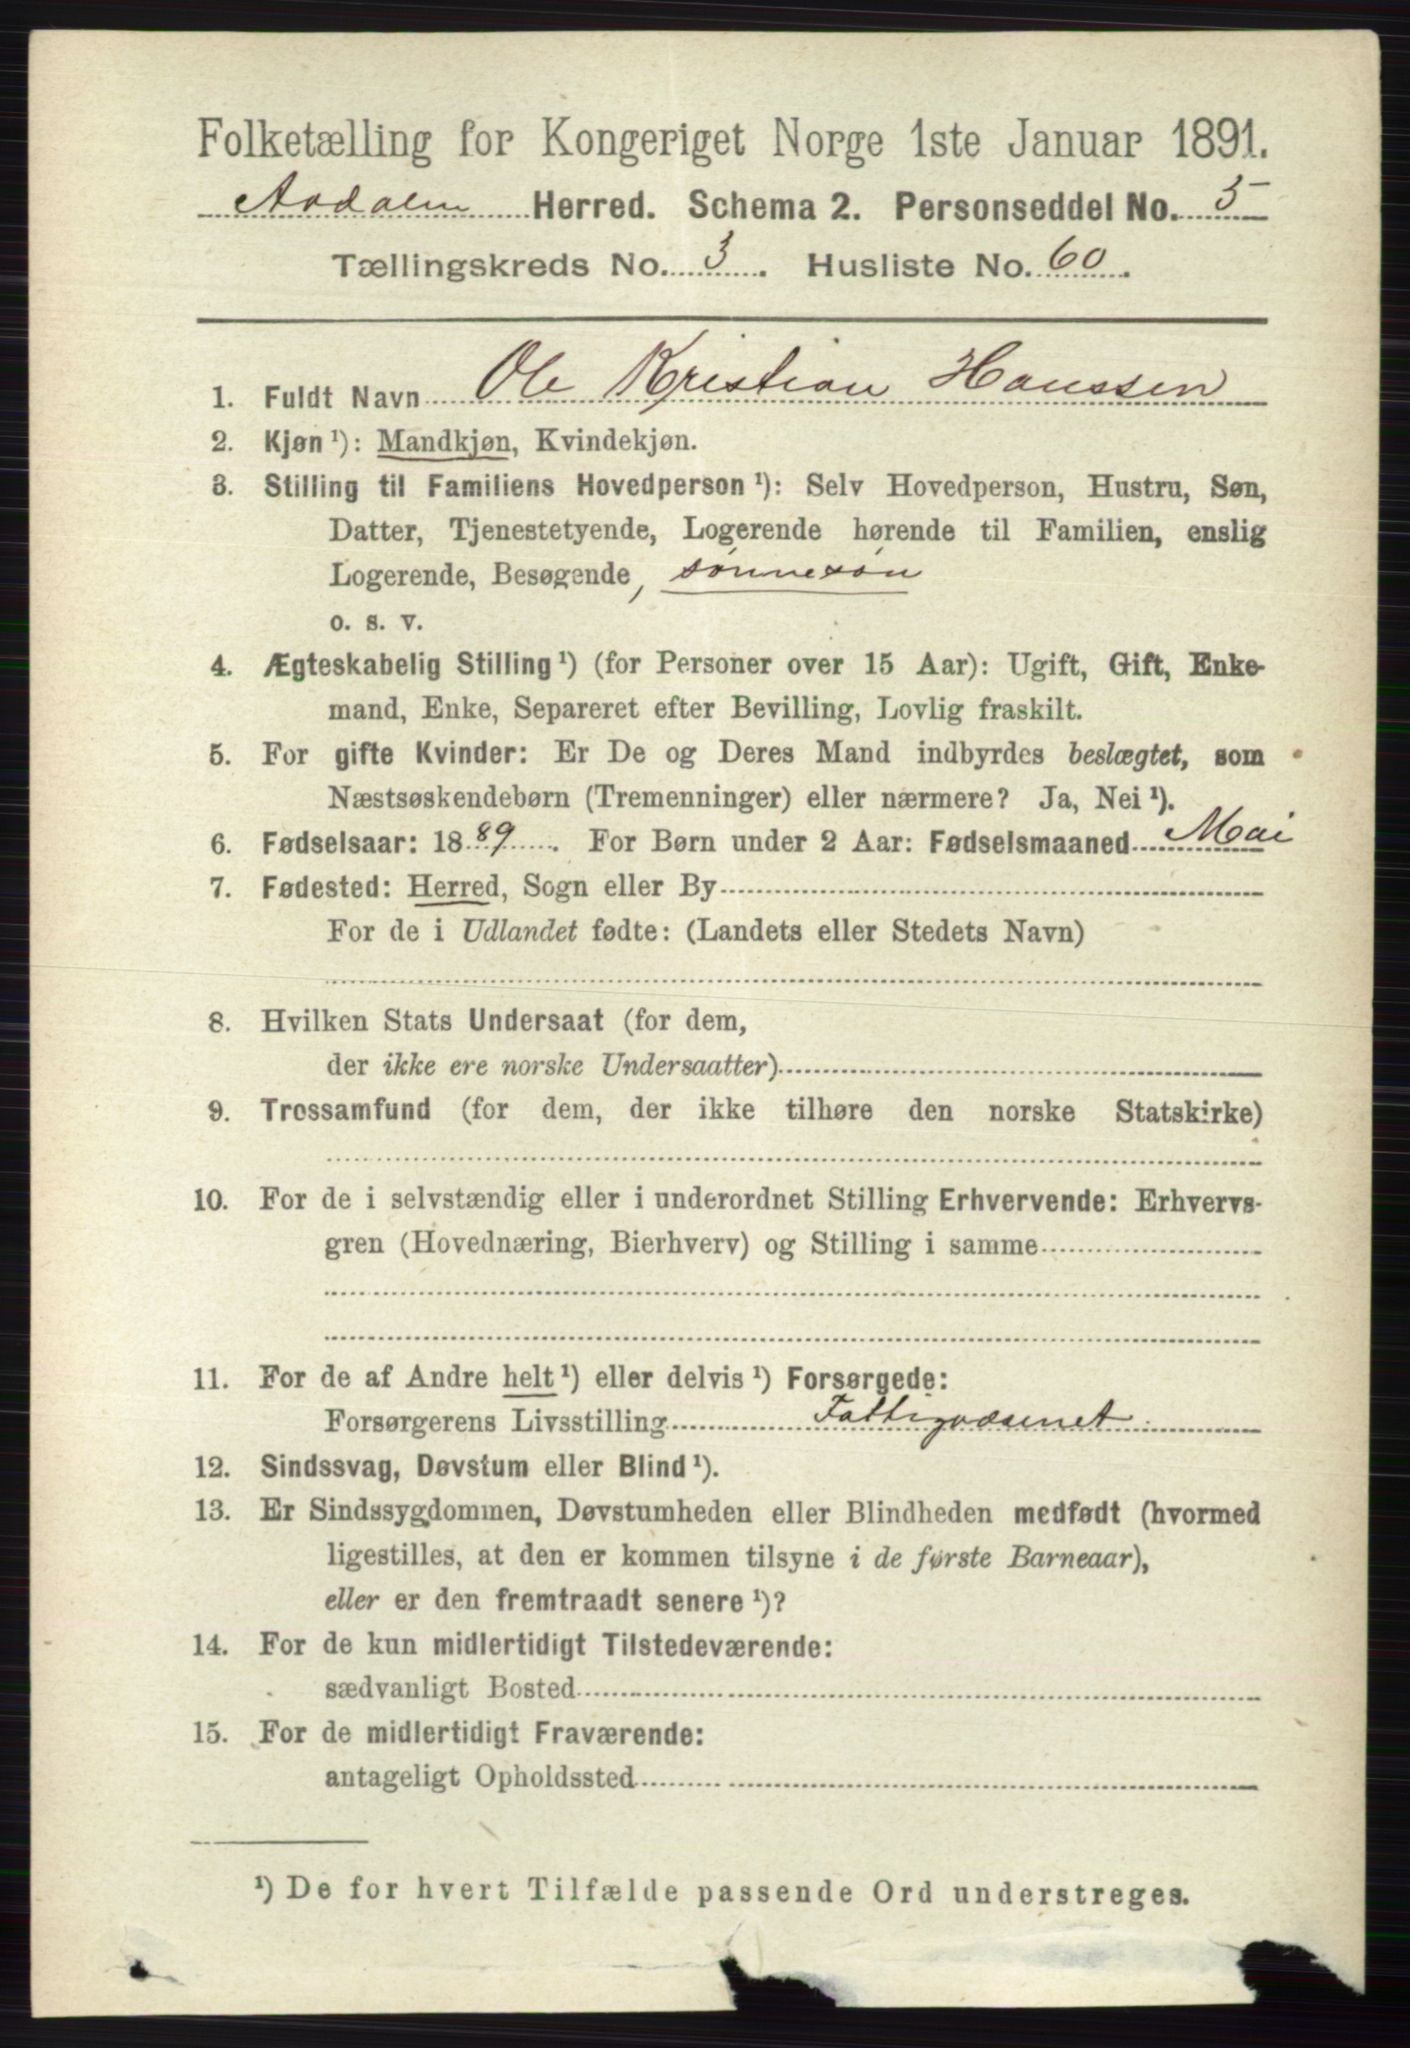 Folketælling for Kongeriget Norge 1ste Januar 1891.
Aadalen Herred. Schema 2. Personseddel No. 5
Tællingskreds No. 3. Husliste No. 60.
1. Fuldt Navn Ole Kristian Hanssen
2. Kjøn ¹): Mandkjøn, Kvindekjøn.
3. Stilling til Familiens Hovedperson ¹): Selv Hovedperson, Hustru, Søn,
Datter, Tjenestetyende, Logerende hørende til Familien, enslig
Logerende, Besøgende, sønnesøn
o. s. v.
4. Ægteskabelig Stilling ¹) (for Personer over 15 Aar): Ugift, Gift, Enke-
mand, Enke, Separeret efter Bevilling, Lovlig fraskilt.
5. For gifte Kvinder: Er De og Deres Mand indbyrdes beslægtet, som
Næstsøskendebørn (Tremenninger) eller nærmere? Ja, Nei ¹).
6. Fødselsaar: 1889. For Børn under 2 Aar: Fødselsmaaned Mai
7. Fødested: Herred, Sogn eller By
For de i Udlandet fødte: (Landets eller Stedets Navn)
8. Hvilken Stats Undersaat (for dem,
der ikke ere norske Undersaatter)
9. Trossamfund (for dem, der ikke tilhøre den norske Statskirke)
10. For de i selvstændig eller i underordnet Stilling Erhvervende: Erhvervs-
gren (Hovednæring, Bierhverv) og Stilling i samme
11. For de af Andre helt ¹) eller delvis ¹) Forsørgede:
Forsørgerens Livsstilling Fattigvæsenet
12. Sindssvag, Døvstum eller Blind ¹).
13. Er Sindssygdommen, Døvstumheden eller Blindheden medfødt (hvormed
ligestilles, at den er kommen tilsyne i de første Barneaar),
eller er den fremtraadt senere ¹)?
14. For de kun midlertidigt Tilstedeværende:
sædvanligt Bosted
15. For de midlertidigt Fraværende:
antageligt Opholdssted
¹) De for hvert Tilfælde passende Ord understreges.